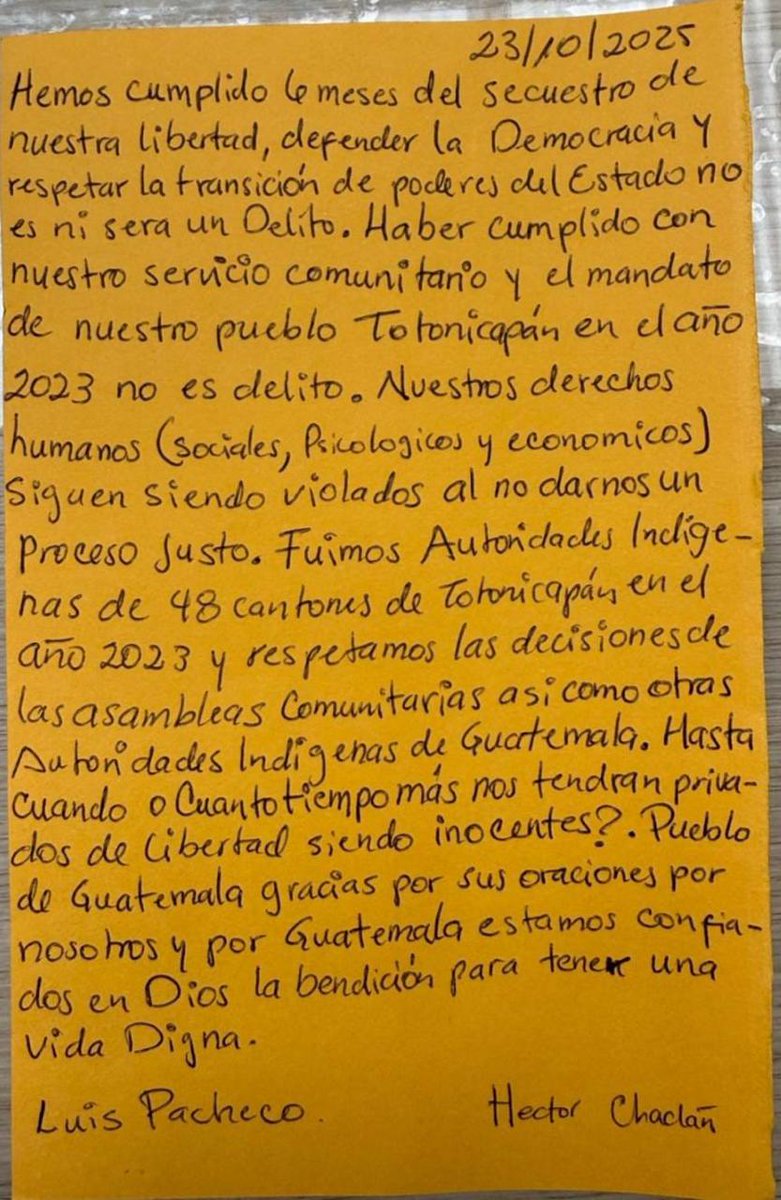 23/10/2025
Hemos cumplido 6 meses del secuestro de
nuestra libertad, defender la Democracia y
respetar la transición de poderes del Estado no
es ni sera un Delito. Haber cumplido con
nuestro servicio comunitario y el mandato
de nuestro pueblo Totonicapán en el año
2023 no es delito. Nuestros derechos
humanos (sociales, Psicologicos y economicos)
Siguen siendo violados al no darnos un
Proceso Justo. Fuimos Autoridades Indige-
nas de 48 cantones de Totonicapán en el
año 2023 y respetamos las decisiones de
las asambleas Comunitarias asi como otras
Autoridades Indígenas de Guatemala. Hasta
cuando o Cuanto tiempo más nos tendran priva-
dos de libertad siendo inocentes?. Pueblo
de Guatemala gracias por sus oraciones por
nosotros y por Guatemala estamos confia-
dos en Dios la bendición para tener una
vida Digna.
Luis Pacheco. Hector Chaclañ